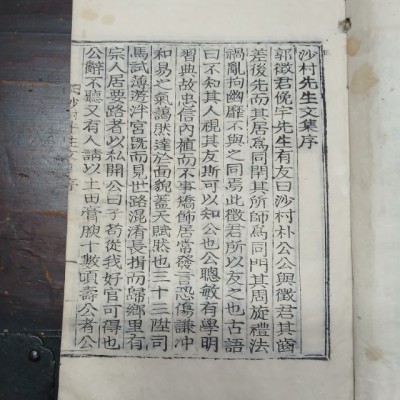 沙村先生文集序
郭徵君俛宇先生有友曰沙村朴公公與徵君其齒
差後先而其居爲同閈其所師爲同門其周旋禮法
禍亂拘幽靡不與之同焉此徵君所以友之也古語
曰不知其人視其友斯可以知公也公聰敏有學明
習典故忠信內植而不事矯飾居常發言恐傷謙冲
和易之氣藹然達於面貌蓋天賦然也三十二陞司
馬試薄遊泮宮旣而見世路混淆長揖而歸鄉里有
宗人居要路者以私開公曰子苟從我好官可得也
公辭不聽又有人請以土田膏腴十數頃壽公者公
沙村先生文集序